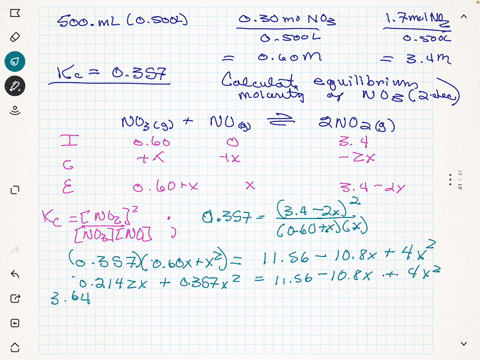 500.mL (0.500L) 0.30mol NO3 / 0.500L 1.7molNO2 / 0.500L
= 0.60M = 3.4M
Kc = 0.357 Calculate equilibrium
molarity of NO3 (2-dec)
NO3(g) + NO(g) ⇌ 2NO2(g)
I 0.60 0 3.4
C +x +x -2x
E 0.60+x x 3.4-2x
Kc = [NO2]^2 / [NO3][NO] ; 0.357 = (3.4-2x)^2 / (0.60+x)(x)
(0.357)(0.60x+x^2) = 11.56 - 10.8x + 4x^2
0.2142x + 0.357x^2 = 11.56 - 10.8x + 4x^2
3.64
41 / 41